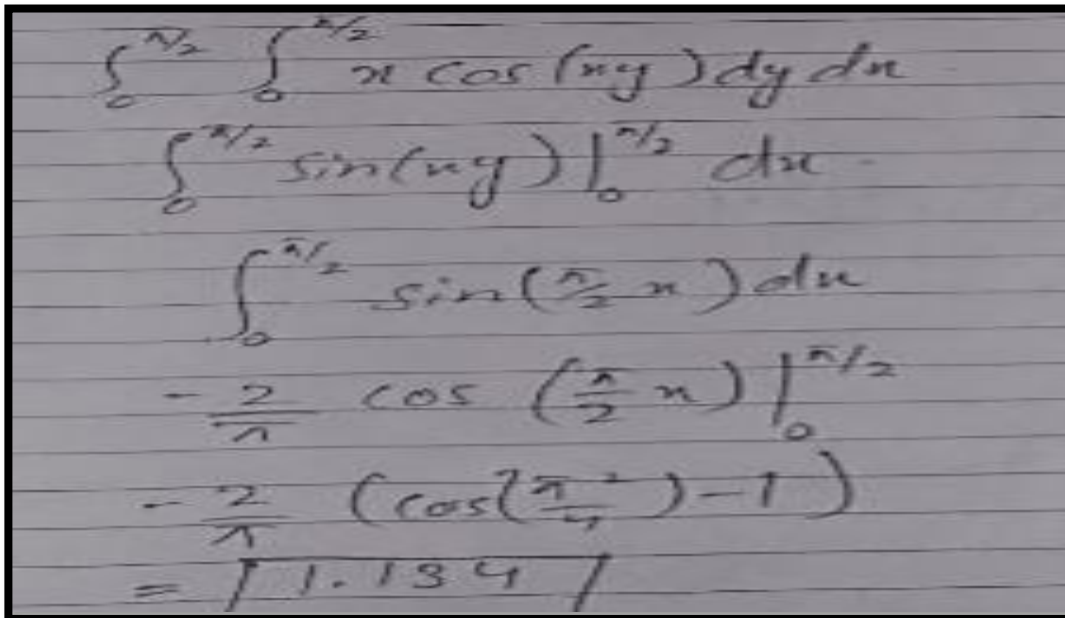 ∫₀^{π/2} ∫₀^{π/2} x cos(xy) dy dx
∫₀^{π/2} sin(xy) |₀^{π/2} dx
∫₀^{π/2} sin(π/2 x) dx
- 2/π cos (π/2 x) |₀^{π/2}
- 2/π (cos(π²/4) - 1)
= 1.134